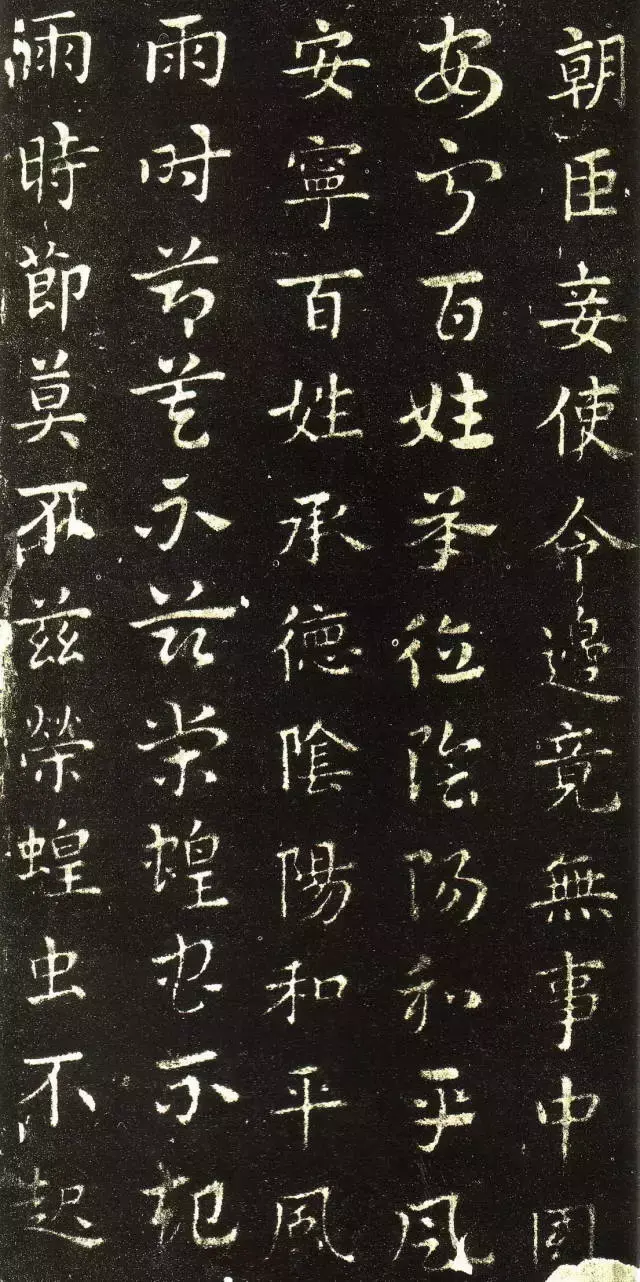 朝臣妾使令邊竟無事中国
安宁百姓承德陰陽和平風
安寧百姓承德陰陽和平風
雨时節莫不茲榮蝗虫不起
雨時節莫不茲榮蝗虫不起